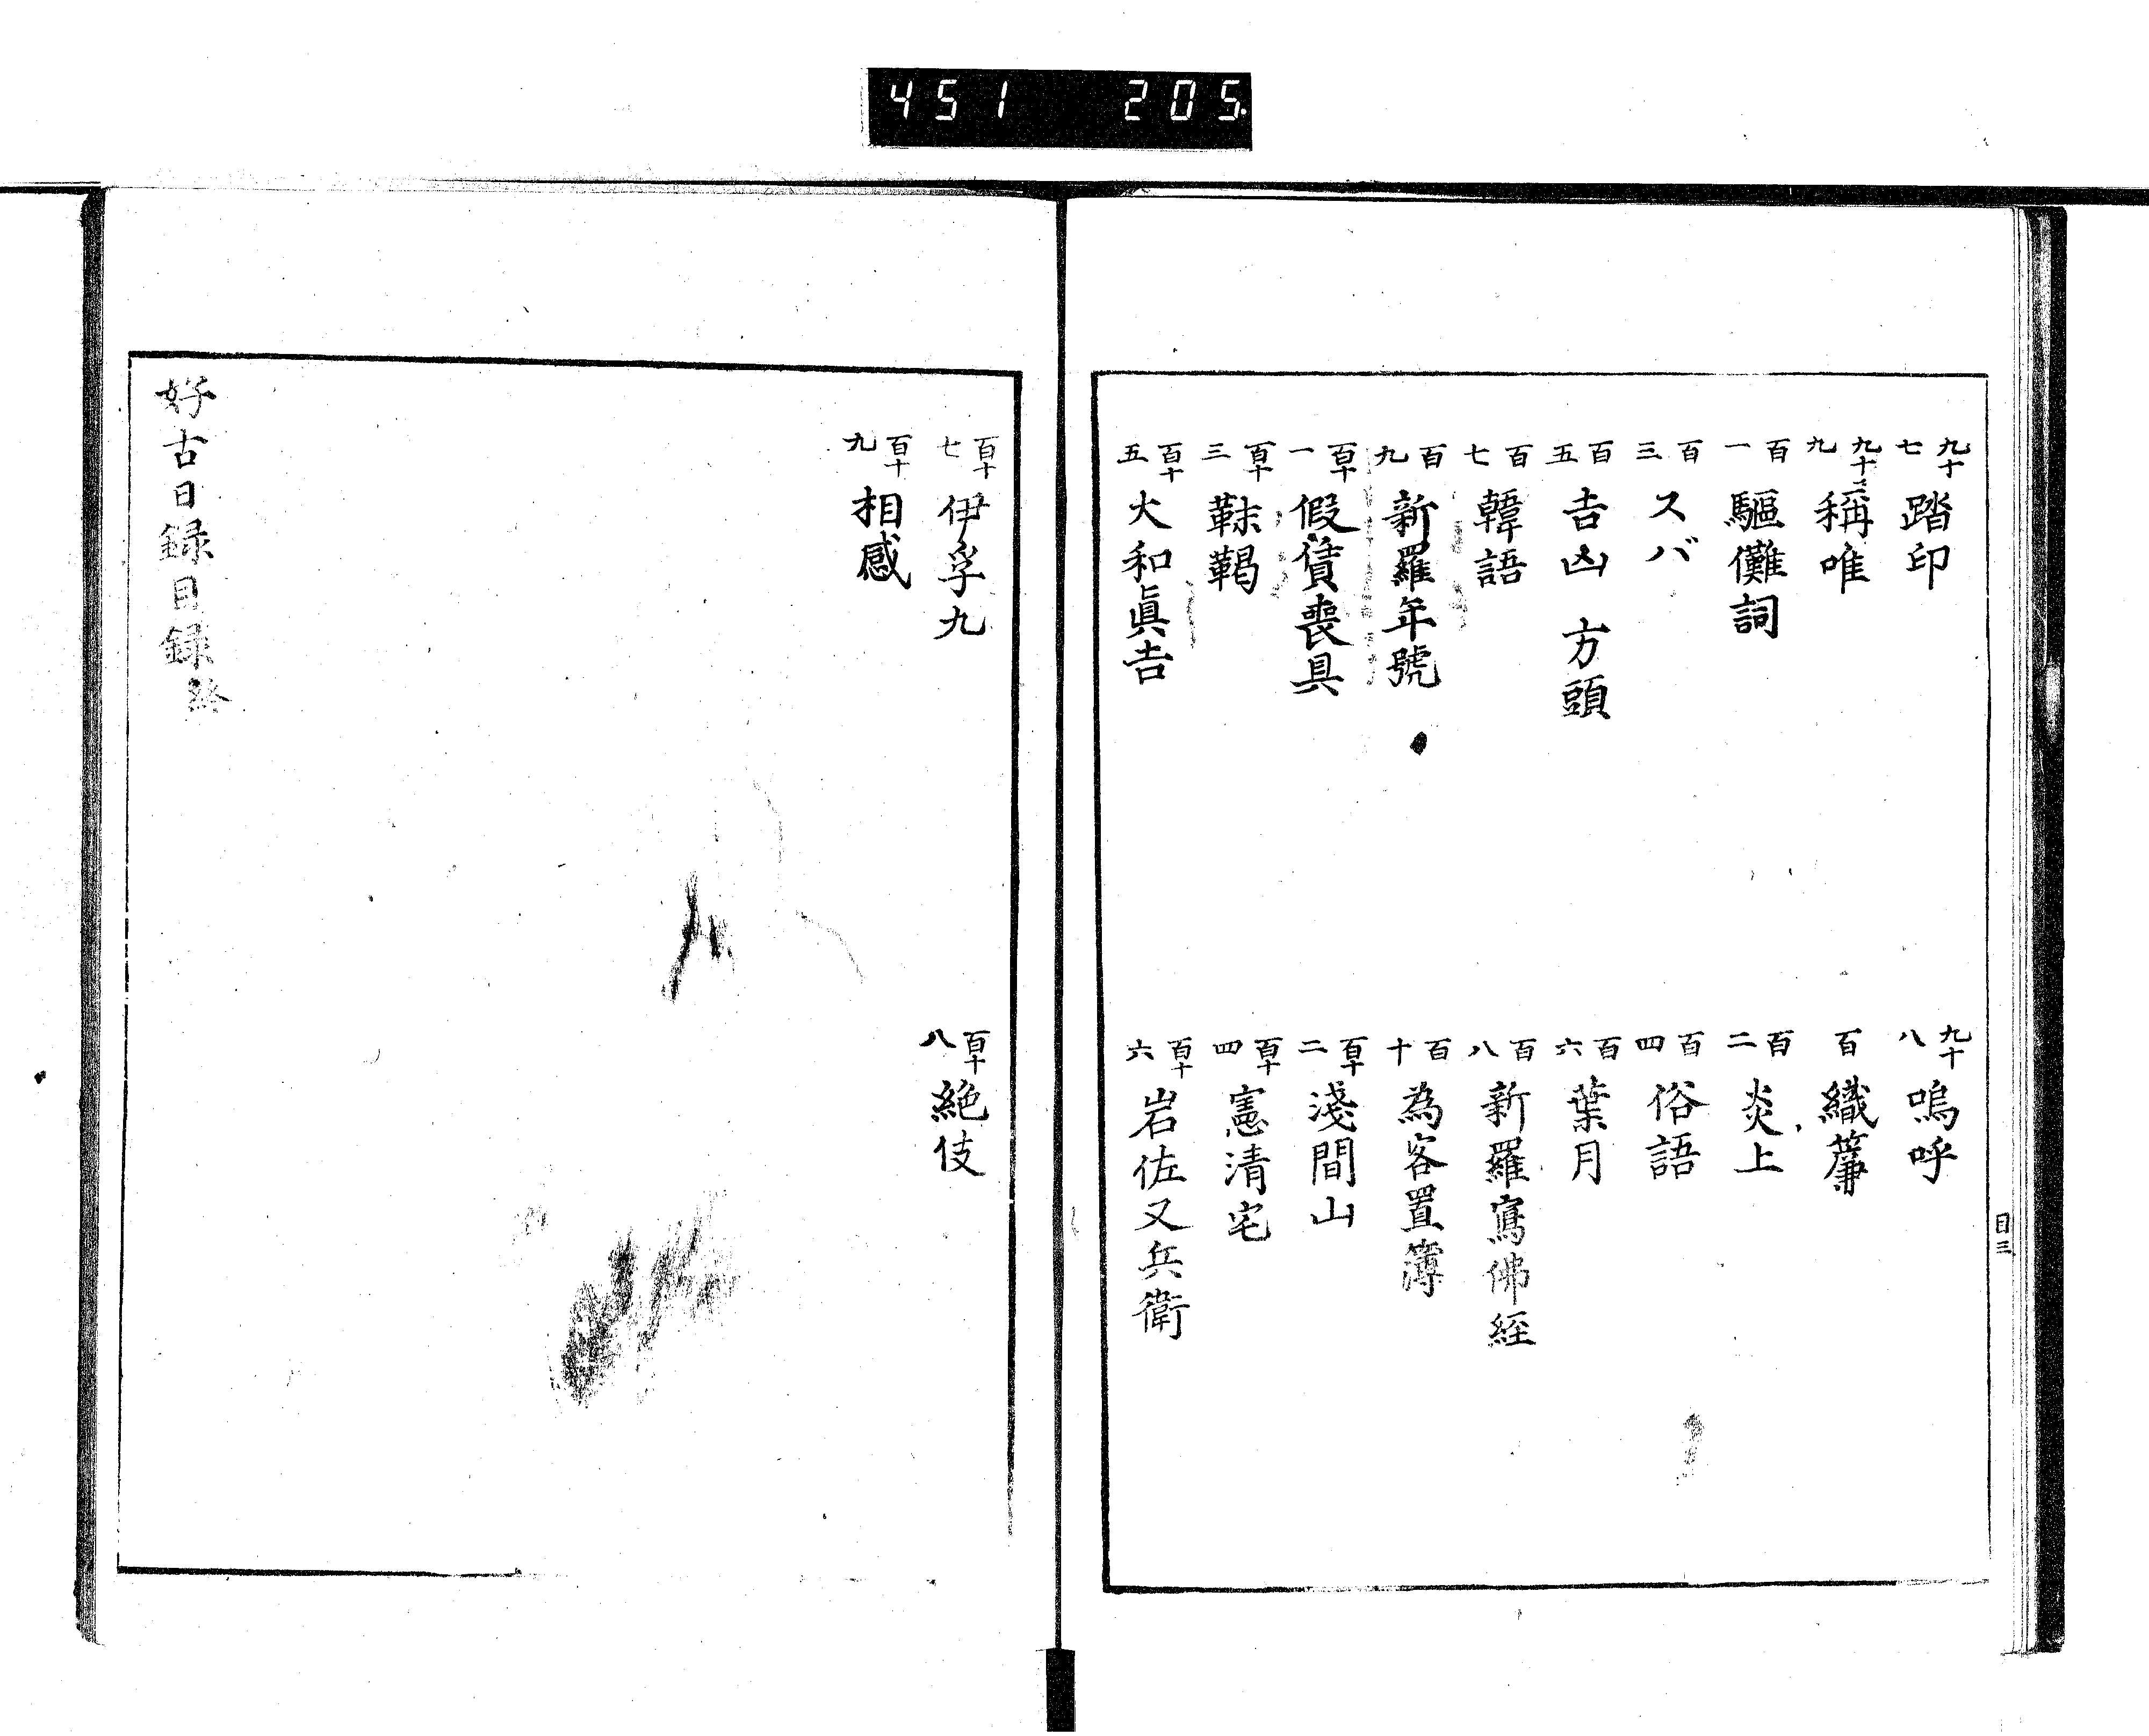 451 205
九十七 踏印
九十八 嗚呼
九十九 稱唯
百 織簾
百一 驅儺詞
百二 炎上
百三 スバ
百四 俗語
百五 吉凶 方頭
百六 葉月
百七 韓語
百八 新羅寫佛經
百九 新羅年號
百十 為客置簿
百十一 假賃喪具
百十二 淺間山
百十三 靺鞨
百十四 憲清宅
百十五 大和眞吉
百十六 岩佐又兵衛
目三
百十七 伊孚九
百十八 絶伎
百十九 相感
好古日録目録終